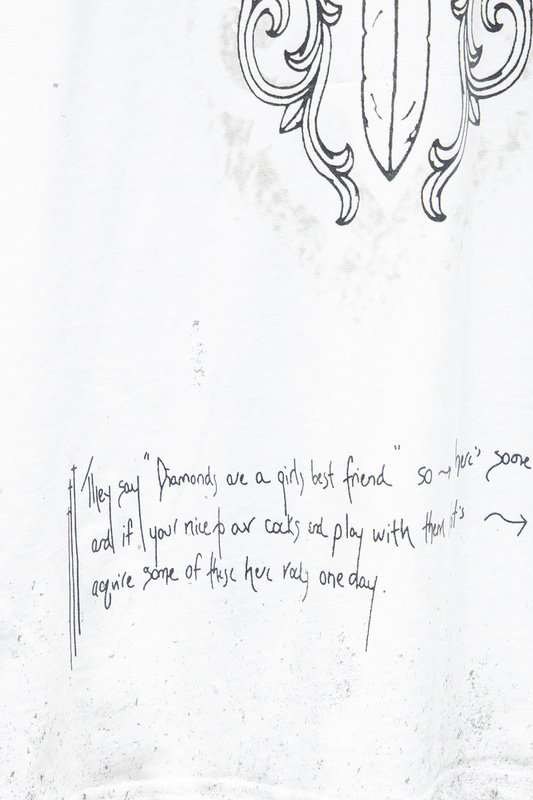 They say "Diamonds are a girls best friend" so ~ here's some
and if your nice to our cocks and play with them it's →
aquire some of these here rocks one day.